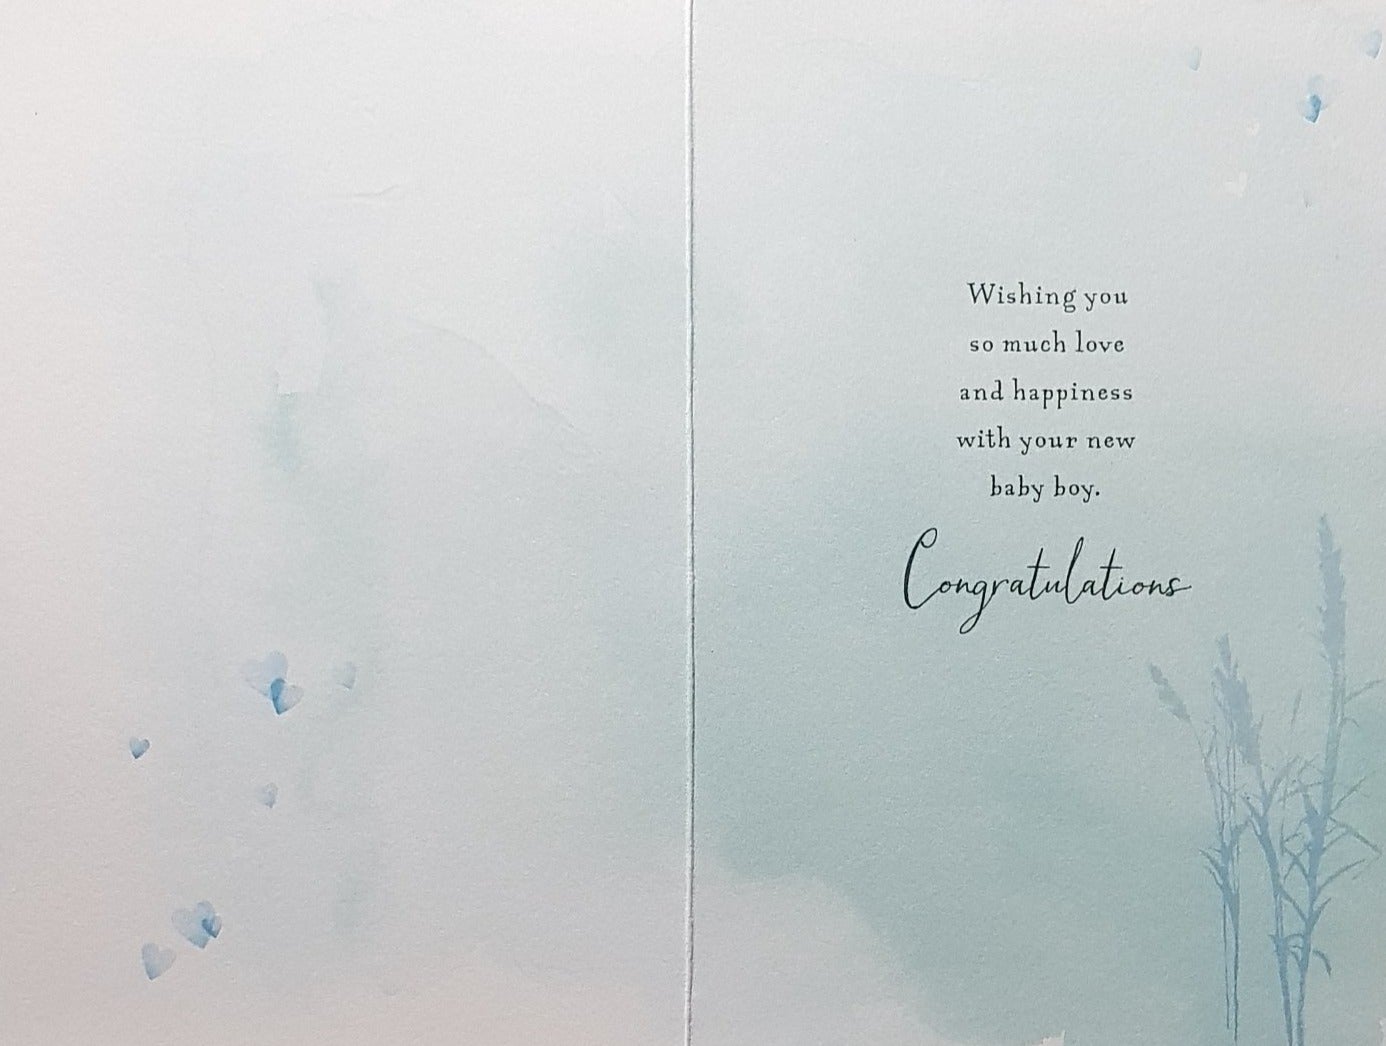 Wishing you
so much love
and happiness
with your new
baby boy.
Congratulations